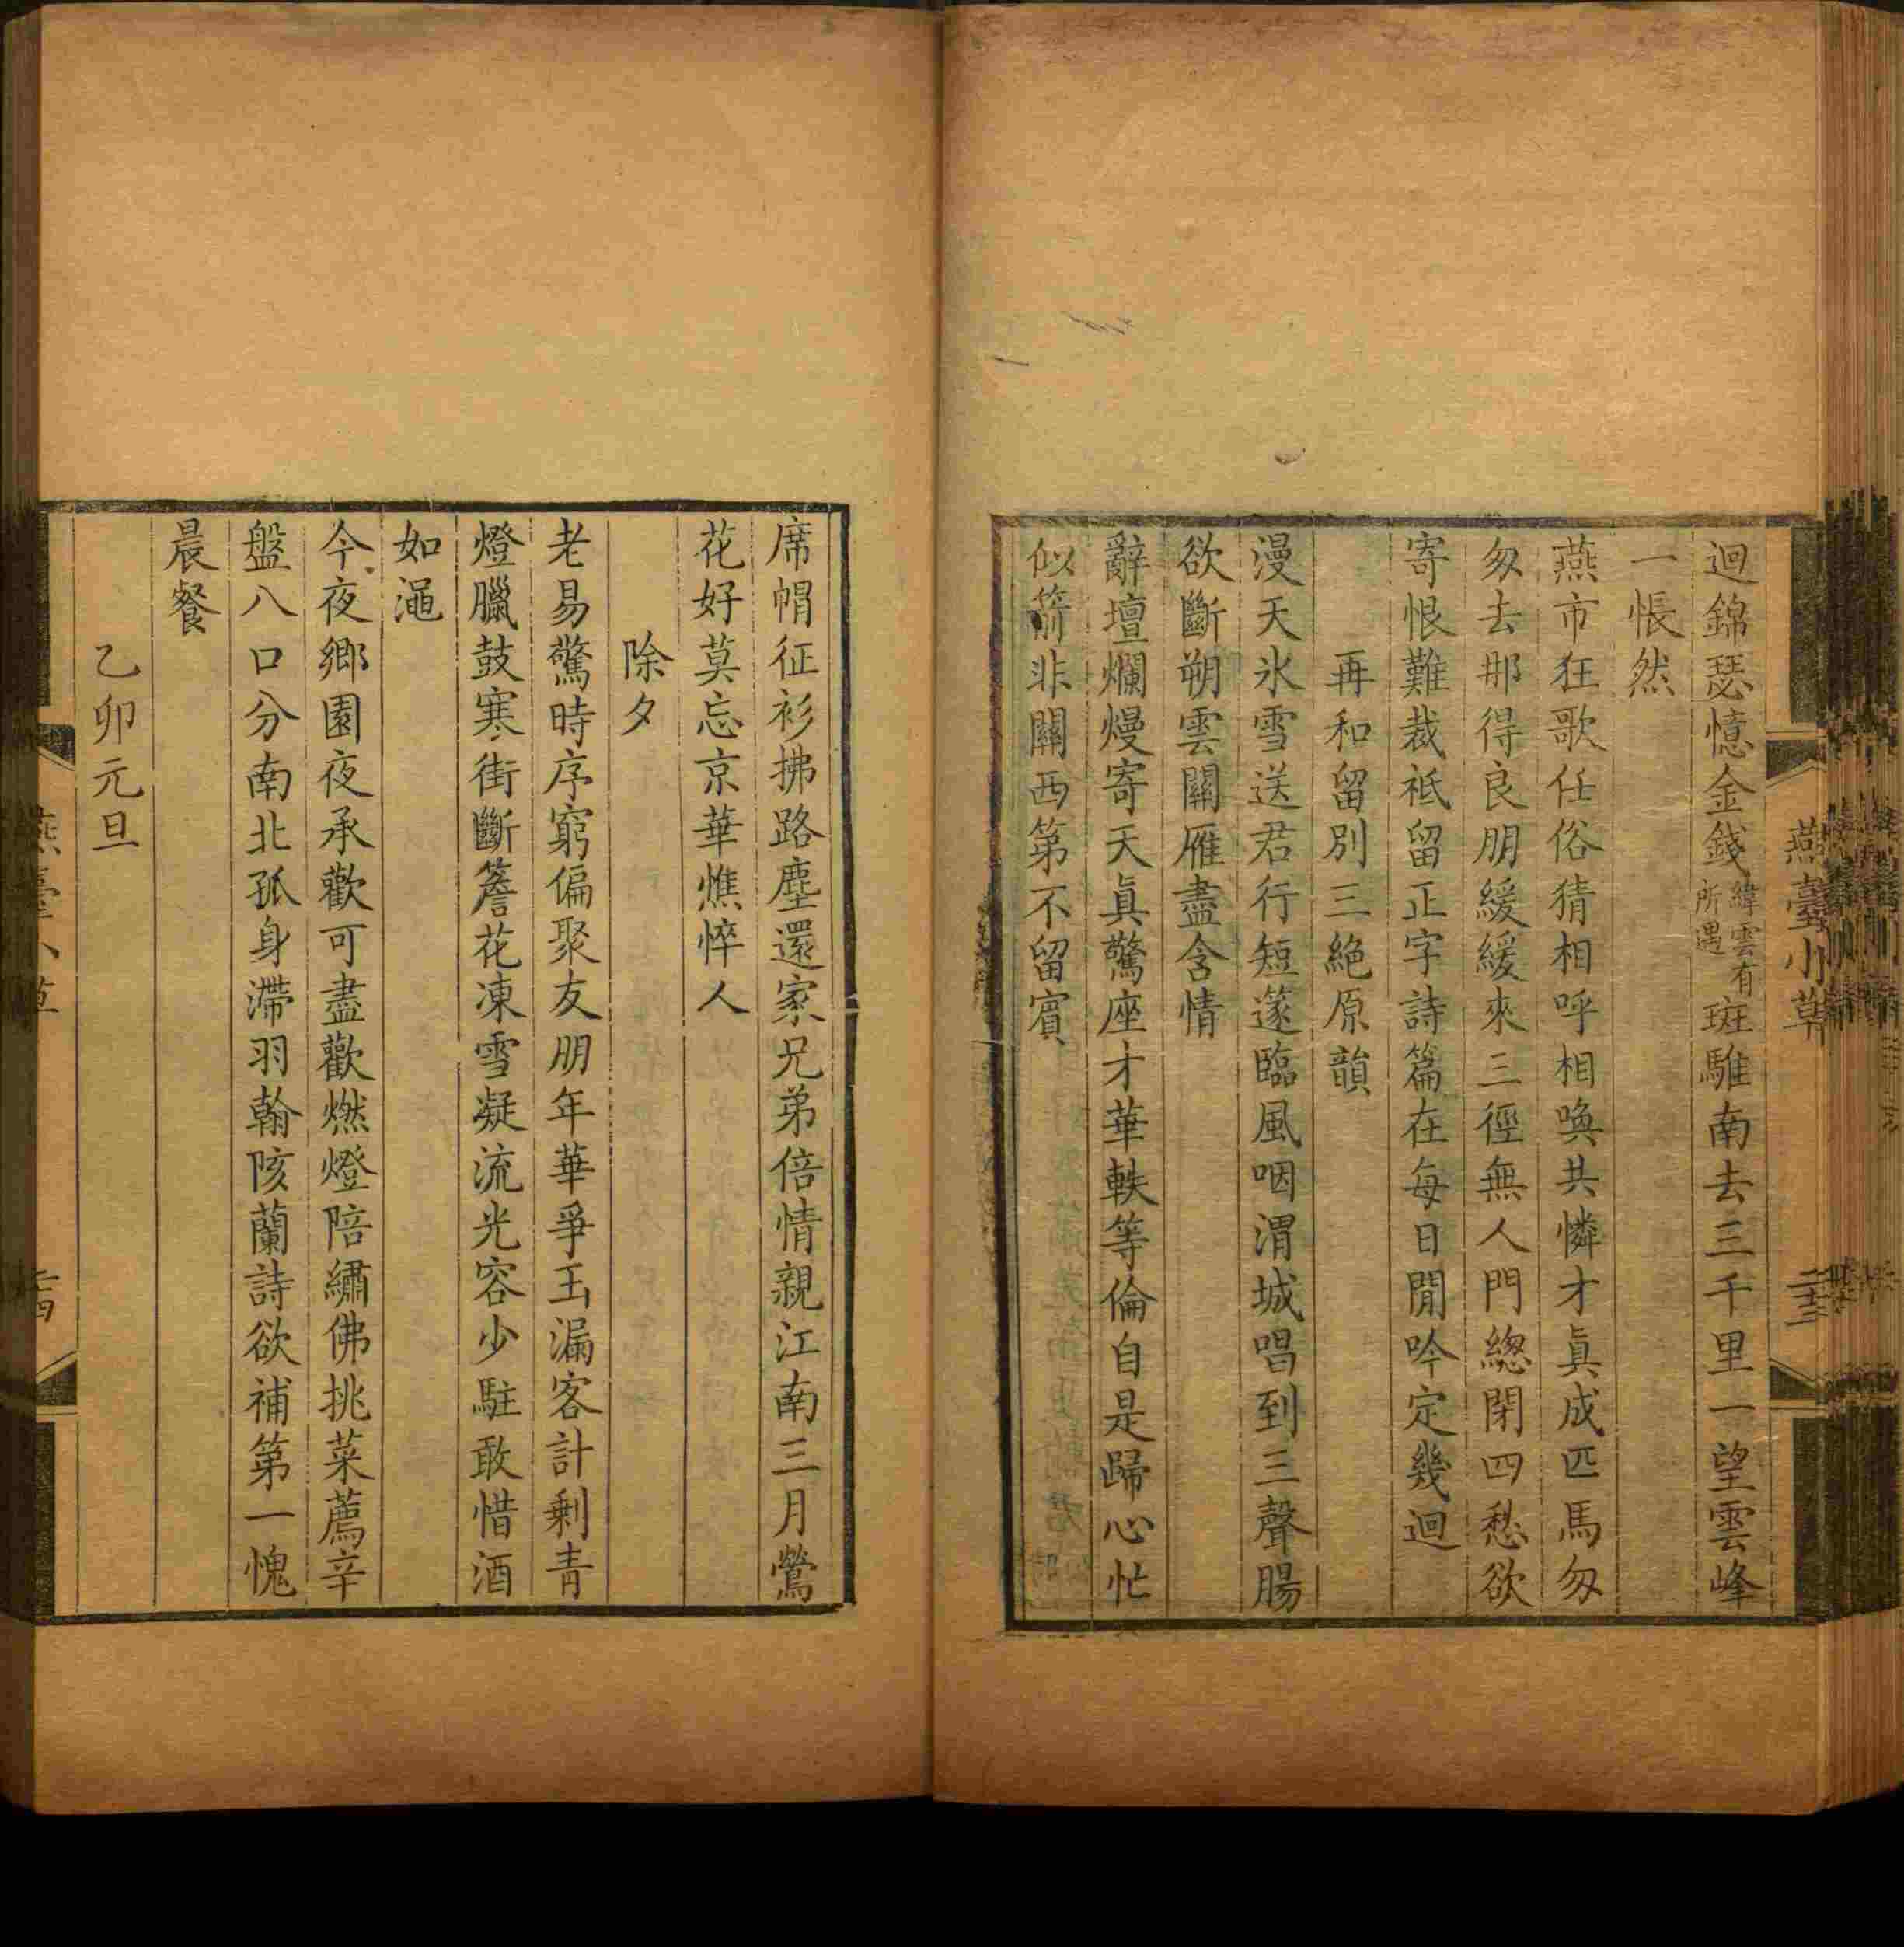 燕臺小草
二十三
迴錦瑟憶金錢緯雲有所遇斑騅南去三千里一望雲峰
一悵然
燕市狂歌任俗猜相呼相喚共憐才眞成匹馬匆
匆去那得良朋緩緩來三徑無人門總閉四愁欲
寄恨難裁祗留正字詩篇在每日閒吟定幾迴
再和留別三絶原韻
漫天氷雪送君行短篴臨風咽渭城唱到三聲腸
欲斷朔雲關雁盡含情
辭壇爛熳寄天眞驚座才華軼等倫自是歸心忙
似箭非關西第不留賓
席帽征衫拂路塵還家兄弟倍情親江南三月鶯
花好莫忘京華憔悴人
除夕
老易驚時序窮偏聚友朋年華爭玉漏客計剩青
燈臘鼓寒街斷簷花凍雪凝流光容少駐敢惜酒
如澠
今夜鄉園夜承歡可盡歡燃燈陪繡佛挑菜薦辛
盤八口分南北孤身滯羽翰陔蘭詩欲補第一愧
晨餐
乙卯元旦